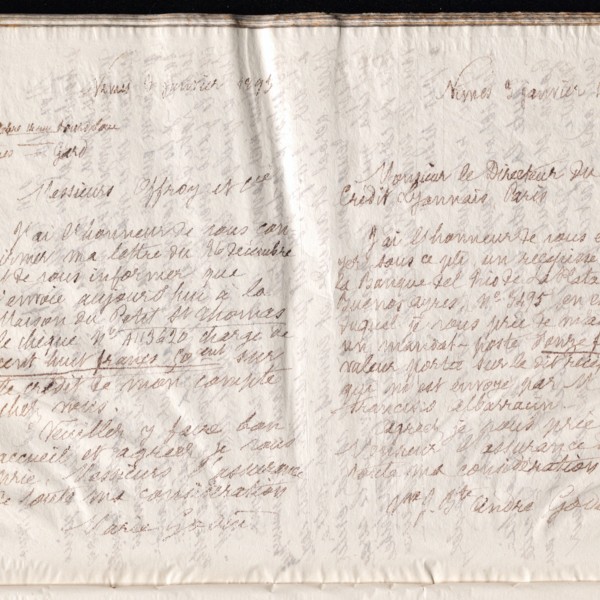 Nimes 2 janvier 1895
Gard
Messieurs Offroy et Cie
J'ai l'honneur de vous con
firmer ma lettre du 26 decembre
et de vous informer que
j'envoie aujourd'hui à la
Maison du Petit St Thomas
le chèque No charge de
cent huit francs 50 cent sur
le crédit de mon compte
chez vous.
Veuillez y faire bon
accueil et agréer je vous
prie, Messieurs l'assurance
de toute ma considération
Nimes 2 janvier
Monsieur le Directeur du
Crédit Lyonnais Paris
J'ai l'honneur de vous
sous ce pli, un
la Banque del Rio de La Plata
Buenos ayres, No 7495
duquel je vous prie de
un mandat-poste onze
valeur portée sur le dit
qui m'est envoyé par M
francois
agréer je vous prie
Monsieur l'assurance
toute ma considération
andré